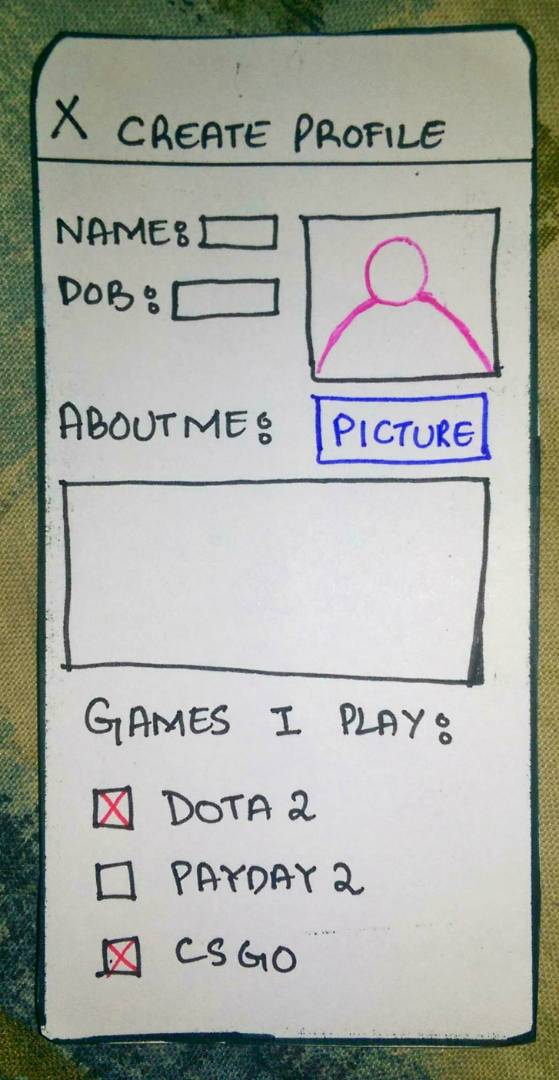 X CREATE PROFILE
NAME:
DOB:
ABOUT ME:
PICTURE
GAMES I PLAY:
DOTA 2
PAYDAY 2
CSGO